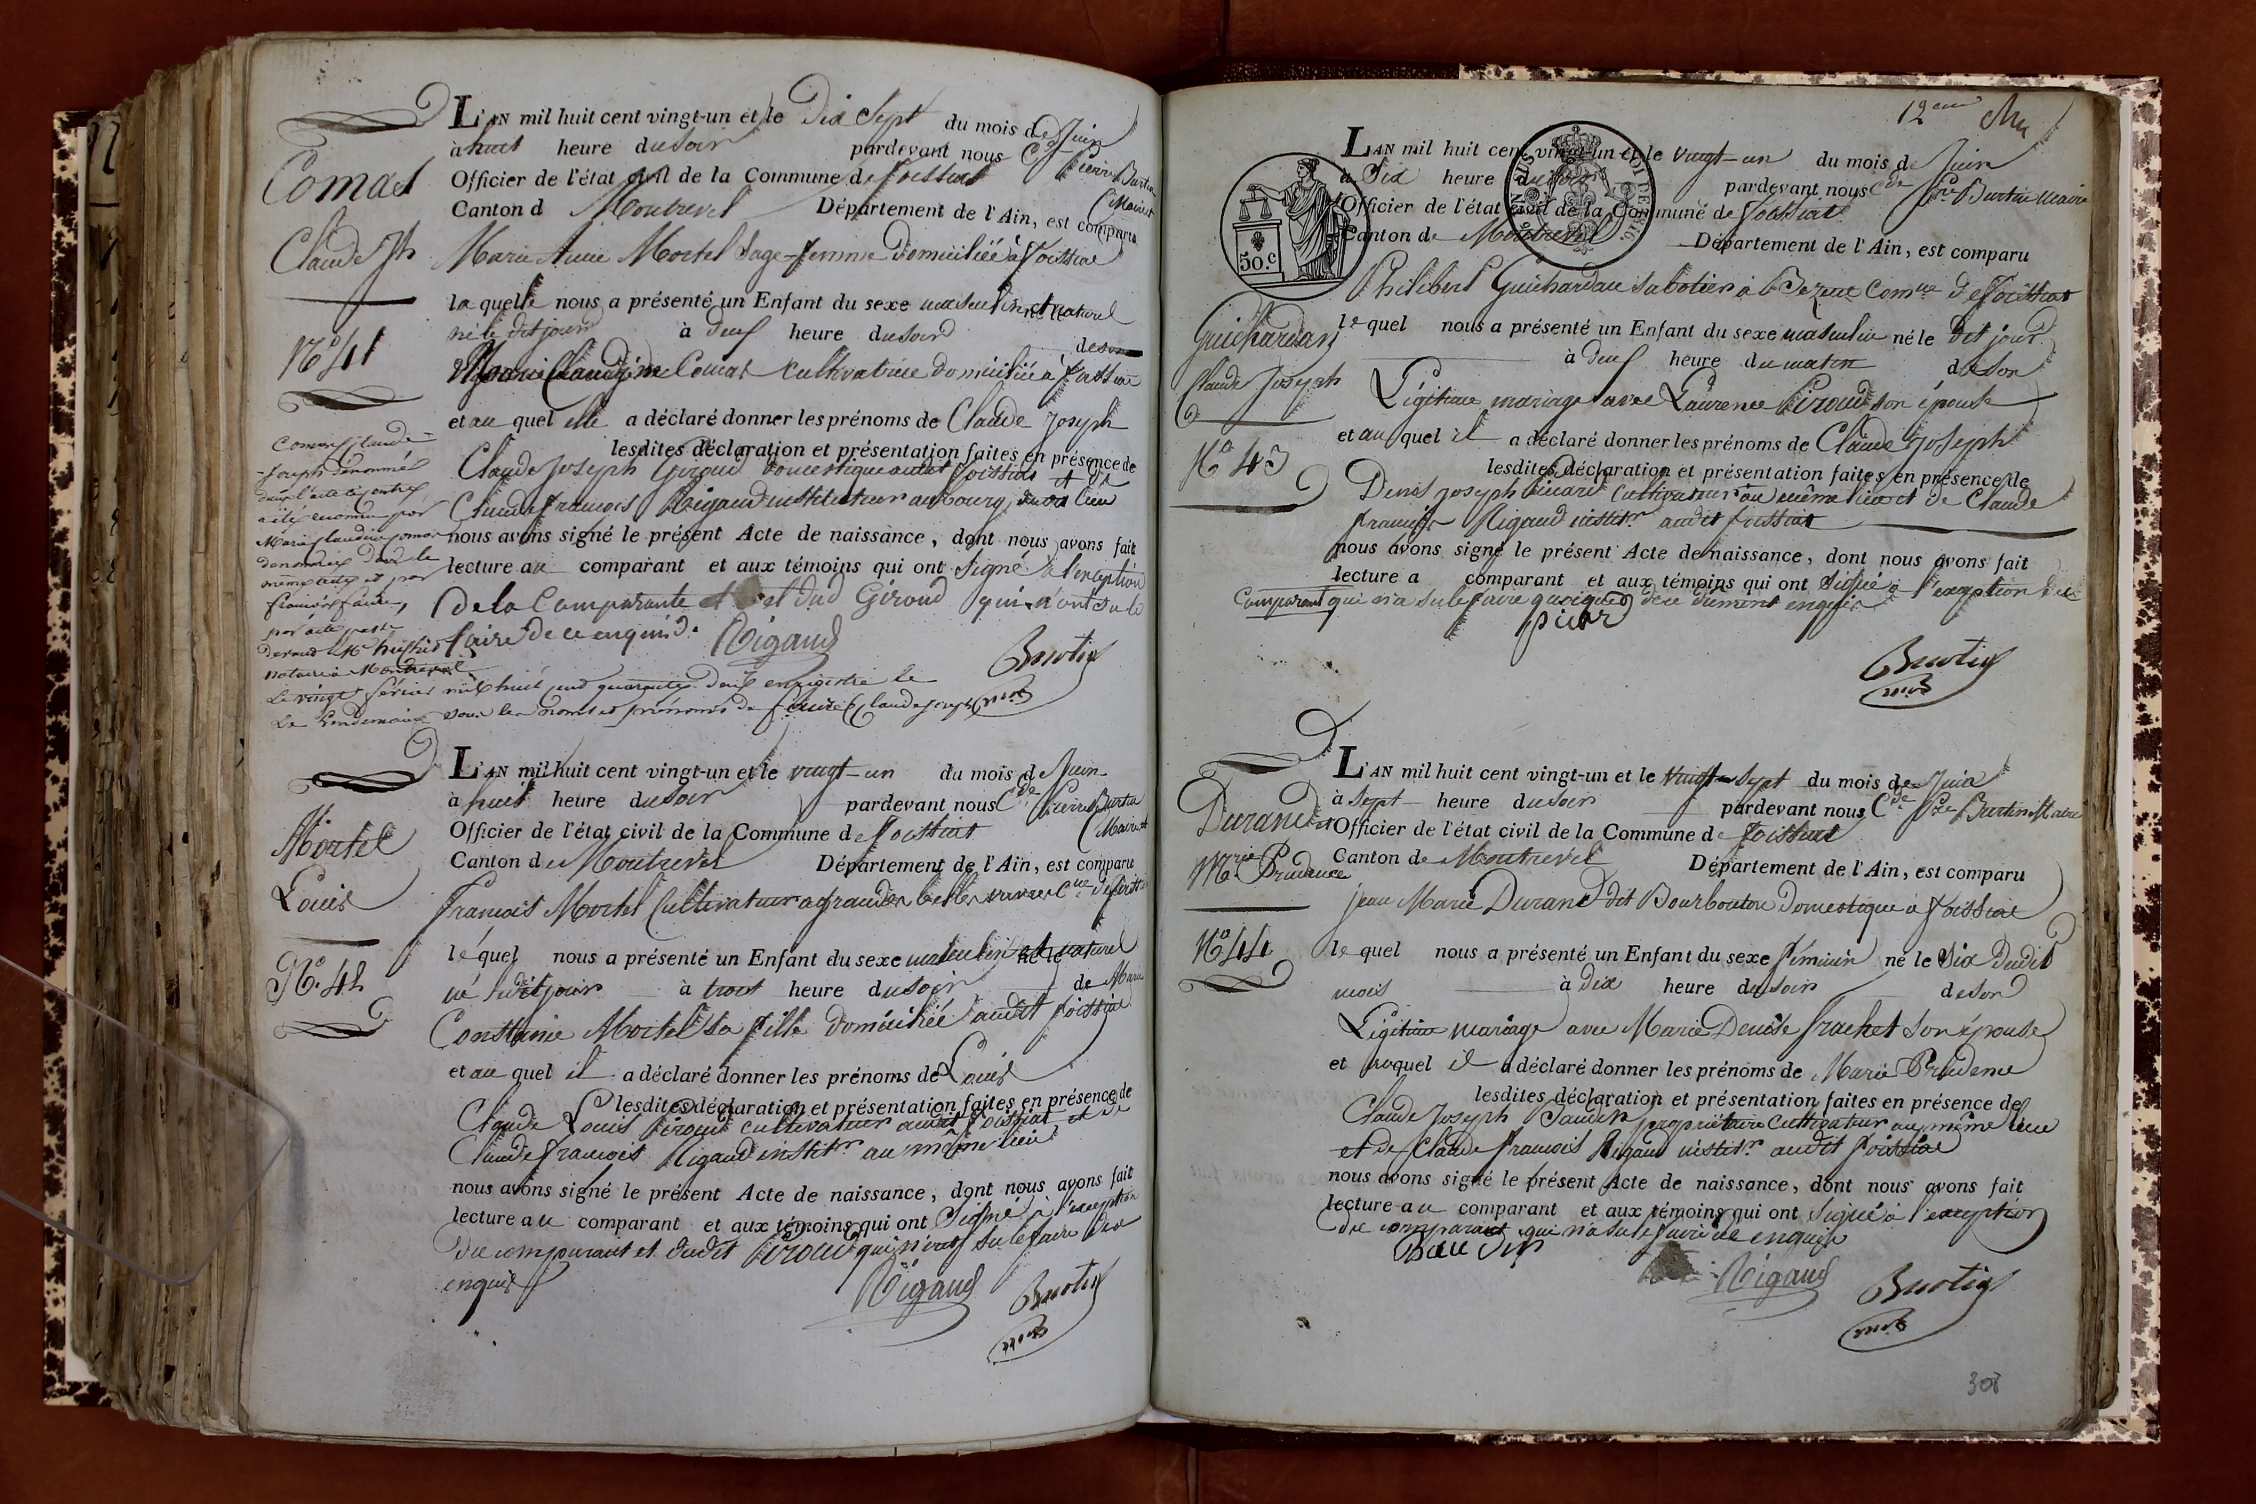 Comas
Claude Jh
N.º 41
L'AN mil huit cent vingt-un et le Dix Sept du mois de Juin
à huit heure du soir pardevant nous Cde Pierre Burtin
Officier de l'état civil de la Commune de foissiat Maire
Canton d Montrevel Département de l'Ain, est comparu
Marie Anne Mortel Sage-femme domiciliée à foissiat
la quelle nous a présenté un Enfant du sexe masculin et naturel
né le dit jour à deux heure du soir de
Marie Claudine Comas cultivatrice domiciliée à foissiat
et au quel elle a déclaré donner les prénoms de Claude Joseph
lesdites déclaration et présentation faites en présence de
Claude Joseph Giroud domestique audit foissiat et de
Claude françois Rigaud instituteur au bourg dudit lieu
nous avons signé le présent Acte de naissance, dont nous avons fait
lecture au comparant et aux témoins qui ont Signé à l'exception
de la Comparante et dud Giroud qui n'ont su le
faire de ce enquis.
Rigaud
Burtin
Comas Claude
Joseph dénommé
dans l'acte ci contre
a été reconnu par
Marie Claudine Comas
dénommée dans le
même acte et par
françois faure,
par acte passé
devant Me
notaire à Montrevel
Le vingt février mil huit cent quarante deux enregistré le
Le Lendemain sous les noms et prénoms de faure Claude joseph
Mortel
Louis
N.º 42
L'AN mil huit cent vingt-un et le vingt-un du mois de Juin
à huit heure du soir pardevant nous Cde Pierre Burtin
Officier de l'état civil de la Commune de foissiat Maire
Canton de Montrevel Département de l'Ain, est comparu
françois Mortel Cultivateur a grandes belles Cne de foissiat
le quel nous a présenté un Enfant du sexe masculin et naturel
né ledit jour à trois heure du soir de Marie
Constanie Mortel Sa fille domiciliée audit foissiat
et au quel il a déclaré donner les prénoms de Louis
lesdites déclaration et présentation faites en présence de
Claude Louis Piroud cultivateur audit foissiat et de
Claude françois Rigaud instit.r au même lieu
nous avons signé le présent Acte de naissance, dont nous avons fait
lecture au comparant et aux témoins qui ont Signé à l'exception
du comparant et dudit Piroud qui n'ont su le faire de ce
enquis
Rigaud
Burtin
12eme
50.c
Guichardan
Claude Joseph
N.º 43
L'AN mil huit cent vingt-un et le vingt-un du mois de Juin
à Six heure du soir pardevant nous Cde Pre Burtin Maire
Officier de l'état civil de la Commune de foissiat
Canton de Montrevel Département de l'Ain, est comparu
Philibert Guichardan Sabotier à Com.ne de foissiat
le quel nous a présenté un Enfant du sexe masculin né le Dit jour
à deux heure du matin de Son
Légitime mariage avec Laurence Piroud son épouse
et au quel il a déclaré donner les prénoms de Claude Joseph
lesdites déclaration et présentation faites en présence de
Denis Joseph Picard Cultivateur au même lieu et de Claude
françois Rigaud instit.r audit foissiat
nous avons signé le présent Acte de naissance, dont nous avons fait
lecture a comparant et aux témoins qui ont Signé à l'exeption du
Comparant qui n'a su le faire quoique de ce dûment enquis
Burtin
Durand
M.rie Prudence
N.º 44
L'AN mil huit cent vingt-un et le Vingt-Sept du mois de Juin
à Sept heure du soir pardevant nous Cde Pre Burtin Maire
Officier de l'état civil de la Commune de foissiat
Canton de Montrevel Département de l'Ain, est comparu
Jean Marie Durand dit Bourbouton Domestique à foissiat
le quel nous a présenté un Enfant du sexe féminin né le Six Dudit
mois à dix heure du soir de Son
Légitime mariage avec Marie Denise frachet Son épouse
et auquel il a déclaré donner les prénoms de Marie Prudence
lesdites déclaration et présentation faites en présence de
Claude Joseph Baudin propriétaire Cultivateur au même lieu
et de Claude françois Rigaud instit.r audit foissiat
nous avons signé le présent Acte de naissance, dont nous avons fait
lecture au comparant et aux témoins qui ont signé à l'exeption
du comparant qui n'a su le faire de ce enquis
Baudin
Rigaud
Burtin
308